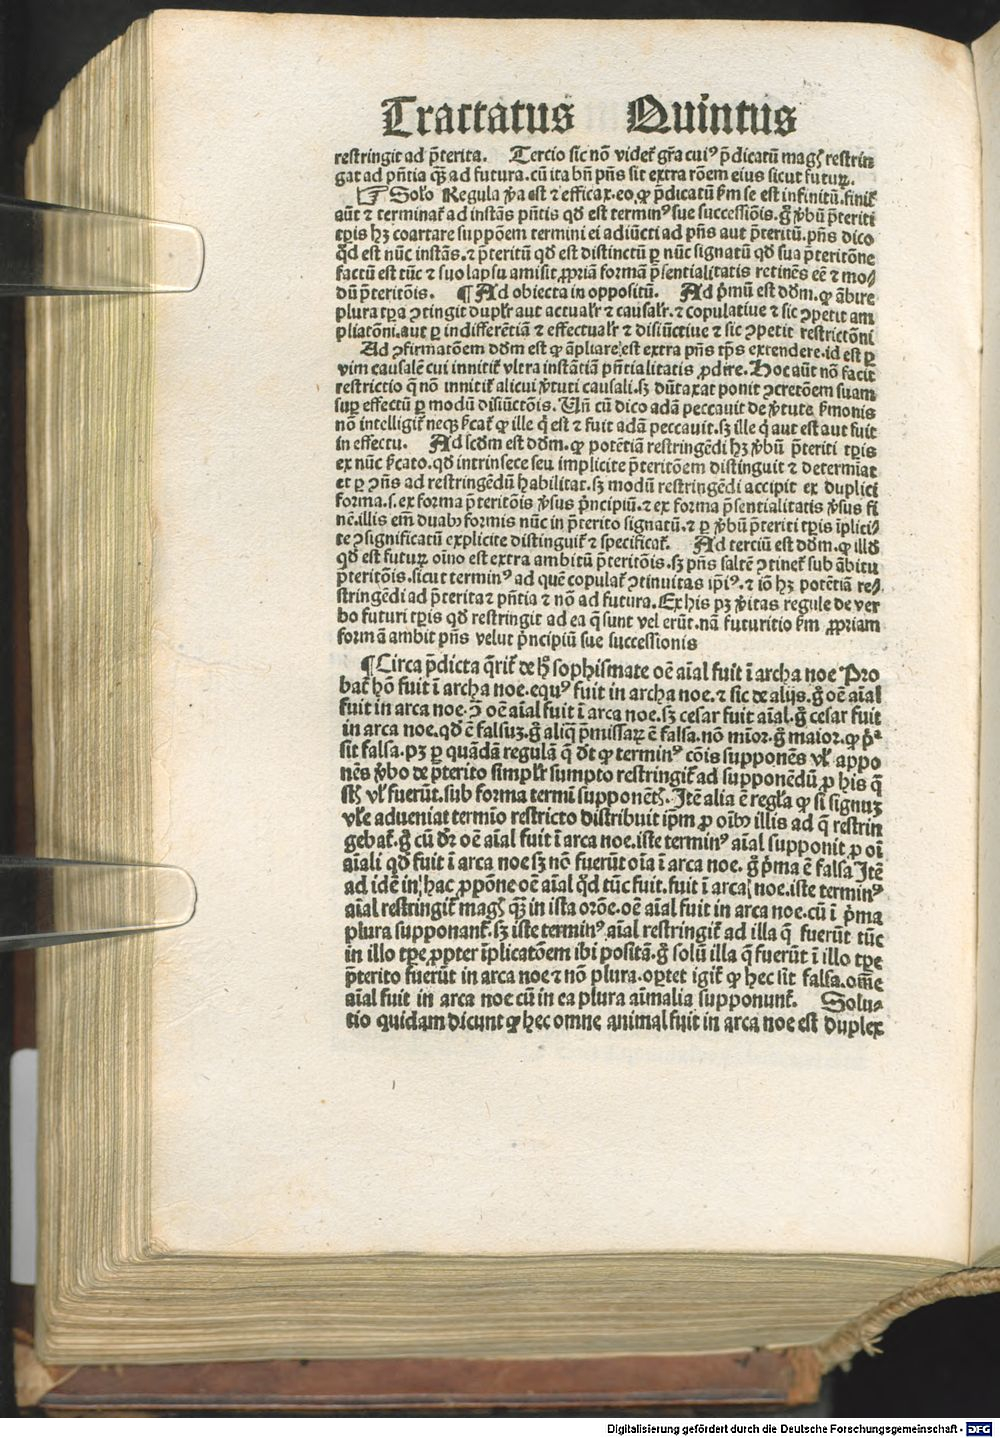 Tractatus Quintus
restringit ad p̄terita. Tercio sic nō videt᷑ gr̄a cuiꝰ p̄dicatū magꝭ restrin
gat ad pn̄tia qȝ̄ ad futura. cū ita bn̄ pn̄s sit extra rōem eius sicut futuꝝ.
☞ Solō Regula v̓a est ⁊ efficax. eo. ꝙ p̄dicatū ẜm se est infinitū. finit᷑
aūt ⁊ terminat᷑ ad instās pn̄tis qd̄ est terminꝰ sue successiōis. gͦ v̓bū p̄teriti
tp̄is hȝ coartare suppōem termini ei adiūcti ad pn̄s aut p̄teritū. pn̄s dico
qd̄ est nūc instās. ⁊ p̄teritū qd̄ est distinctū ꝑ nūc signatū qd̄ sua p̄teritōne
factū est tūc ⁊ suo lapsu amisit ꝓpriā formā p̄sentialitatis retinēs eē ⁊ mo/
dū p̄teritōis. ¶ Ad obiecta in oppositū. Ad p̓mū est dd̄m. ꝙ ābire
plura tp̄a ↄtingit duplr̄ aut actualr̄ ⁊ causalr̄. ⁊ copulatiue ⁊ sic ↄpetit am
pliatōni. aut ꝑ indifferētiā ⁊ effectualr̄ ⁊ disiūctiue ⁊ sic ↄpetit restrictōni
Ad ↄfirmatōem dd̄m est ꝙ āpliare est extra pn̄s tp̄s extendere. id est ꝑ
vim causalē cui innitit᷑ vltra instātiā pn̄tialitatis ꝓdire. Hoc aūt nō facit
restrictio q̄ nō innitit᷑ alicui v̓tuti causali. sȝ dūtaxat ponit ↄcretōem suam
suꝑ effectū ꝑ modū disiūctōis. Vn̄ cū dico adā peccauit de v̓tute ẜmonis
nō intelligit᷑ neqȝ ẜcat᷑ ꝙ ille q̓ est ⁊ fuit adā peccauit. sȝ ille q̓ aut est aut fuit
in effectu. Ad scd̄m est dd̄m. ꝙ potētiā restringēdi hȝ v̓bū p̄teriti tp̄is
ex nūc ẜcato. qd̄ intrinsece seu implicite p̄teritōem distinguit ⁊ determīat
et ꝑ ↄn̄s ad restringēdū habilitat. sȝ modū restringēdi accipit ex duplici
forma. s. ex forma p̄teritōis v̓sus p̓ncipiū. ⁊ ex forma p̄sentialitatis v̓sus fi
nē. illis em̄ duabꝰ formis nūc in p̄terito signatū. ⁊ ꝑ v̓bū p̄teriti tp̄is īplici/
te ↄsignificatū explicite distinguit᷑ ⁊ specificat᷑. Ad terciū est dd̄m. ꝙ illd̄
qd̄ est futuꝝ oīno est extra ambitū p̄teritōis. sȝ pn̄s saltē ↄtinet᷑ sub ābitu
p̄teritōis. sicut terminꝰ ad quē copulat᷑ ↄtinuitas ip̄iꝰ. ⁊ iō hȝ potētiā re/
stringēdi ad p̄terita ⁊ pn̄tia ⁊ nō ad futura. Ex his pȝ v̓itas regule de ver
bo futuri tp̄is qd̄ restringit ad ea q̄ sunt vel erūt. nā futuritio ẜm ꝓpriam
formā ambit pn̄s velut p̓ncipiū sue successionis
¶ Circa p̄dicta q̄rit᷑ de hͦ sophismate oē aīal fuit ī archa noe Pro
bat᷑ hō fuit ī archa noe. equꝰ fuit in archa noe. ⁊ sic de alijs. gͦ oē aīal
fuit in arca noe. ↄ̄ oē aīal fuit ī arca noe. sȝ cesar fuit aīal. gͦ cesar fuit
in arca noe. qd̄ ē falsuȝ. gͦ aliq̄ p̄missaꝝ ē falsa. nō mīor. gͦ maior. ꝙ p̓ᵃ
sit falsa. pȝ ꝑ quādā regulā q̄ dt̄ ꝙ terminꝰ cōis supponēs vl̓ appo
nēs v̓bo de p̄terito simplr̄ sumpto restringit᷑ ad supponēdū ꝓ his q̄
st̄ vl̓ fuerūt. sub forma termī supponētꝭ. Itē alia ē regl̓a ꝙ si signuȝ
vl̓e adueniat termīo restricto distribuit ip̄m ꝓ oībꝰ illis ad q̄ restrin
gebat᷑. gͦ cū dr̄ oē aīal fuit ī arca noe. iste terminꝰ aīal supponit ꝓ oī
aīali qd̄ fuit ī arca noe sȝ nō fuerūt oīa ī arca noe. gͦ p̓ma ē falsa Itē
ad idē in hac ꝓpōne oē aīal qd̄ tūc fuit. fuit ī arca noe. iste terminꝰ
aīal restringit᷑ magꝭ qȝ̄ in ista orōe. oē aīal fuit in arca noe. cū ī p̓ma
plura supponant᷑. sȝ iste terminꝰ aīal restringit᷑ ad illa q̄ fuerūt tūc
in illo tp̄e ꝓpter īplicatōem ibi positā. gͦ solū illa q̄ fuerūt ī illo tp̄e
p̄terito fuerūt in arca noe ⁊ nō plura. oꝑtet igit᷑ ꝙ hec sit falsa. om̄e
aīal fuit in arca noe cū in ea plura aīmalia supponunt᷑. Solu-
tio quidam dicunt ꝙ hec omne animal fuit in arca noe est duplex
Digitalisierung gefördert durch die Deutsche Forschungsgemeinschaft - DFG